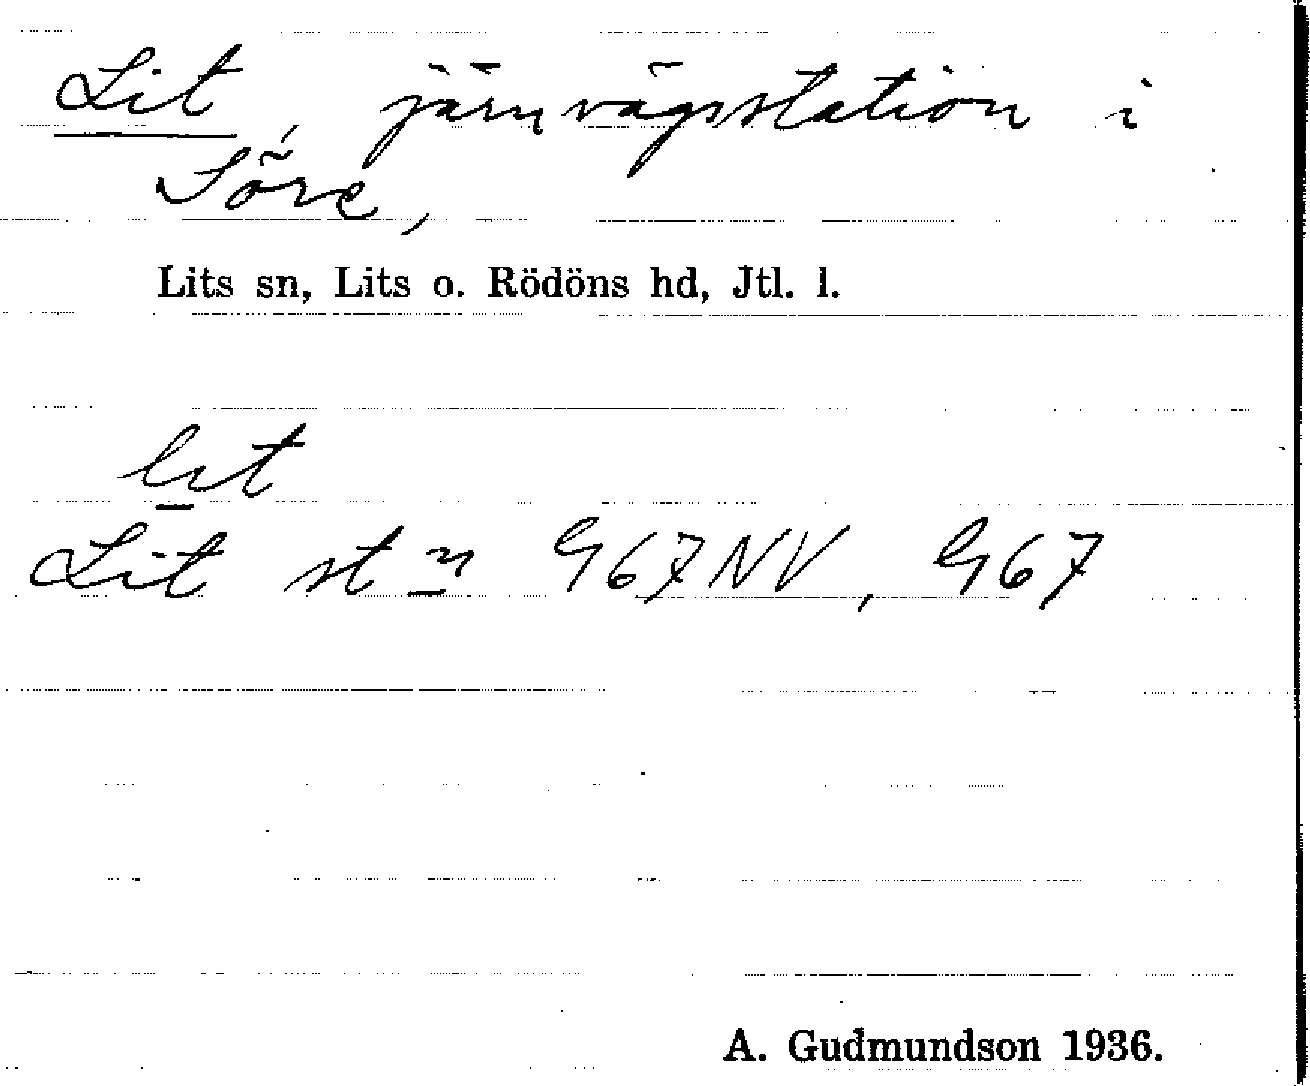 Lit, järnvägsstation i
Söre,
Lits sn, Lits o. Rödöns hd, Jtl. l.
lıt
Lit stn G67NV, G67
A. Gudmundson 1936.